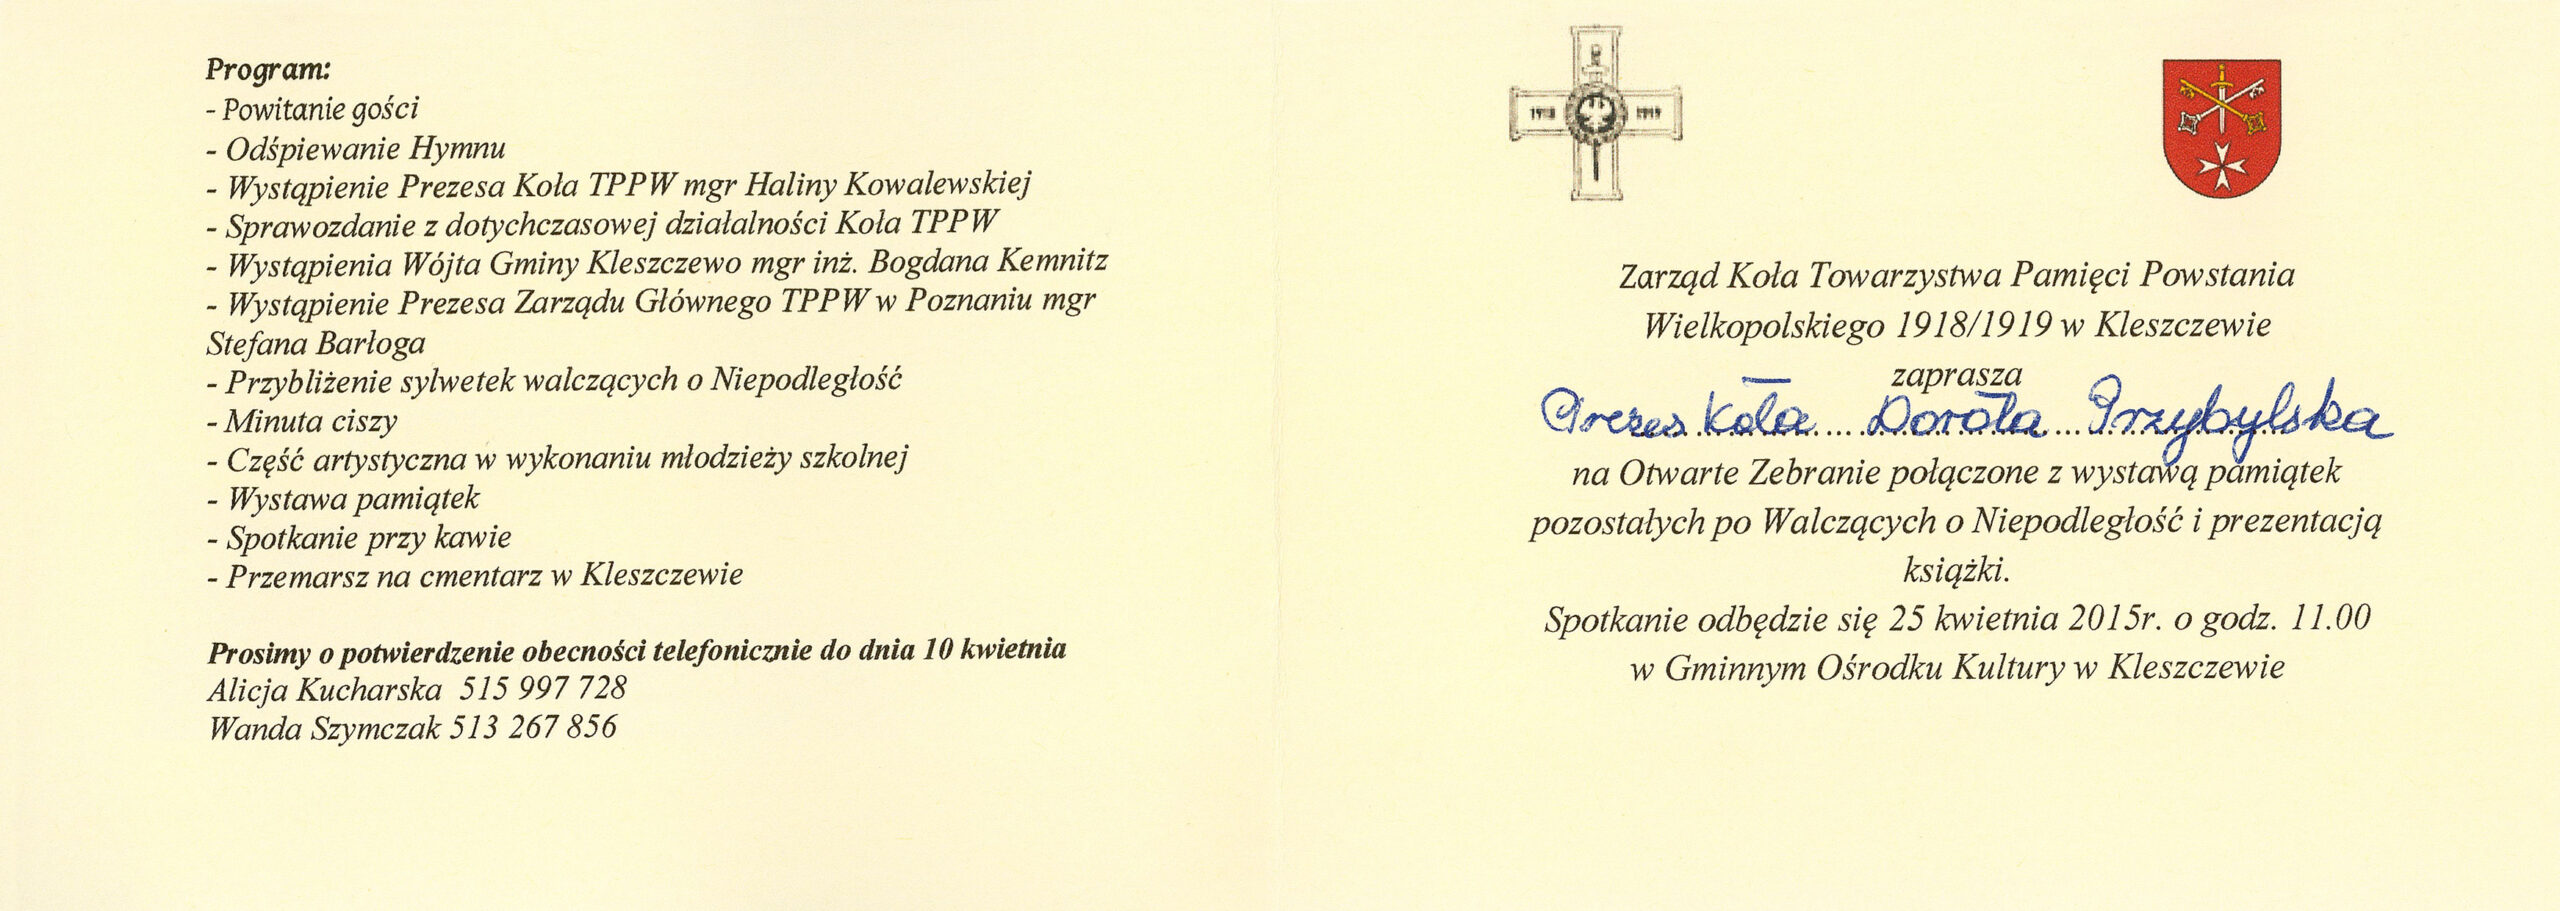 Program:
- Powitanie gości
- Odśpiewanie Hymnu
- Wystąpienie Prezesa Koła TPPW mgr Haliny Kowalewskiej
- Sprawozdanie z dotychczasowej działalności Koła TPPW
- Wystąpienia Wójta Gminy Kleszczewo mgr inż. Bogdana Kemnitz
- Wystąpienie Prezesa Zarządu Głównego TPPW w Poznaniu mgr
Stefana Barłoga
- Przybliżenie sylwetek walczących o Niepodległość
- Minuta ciszy
- Część artystyczna w wykonaniu młodzieży szkolnej
- Wystawa pamiątek
- Spotkanie przy kawie
- Przemarsz na cmentarz w Kleszczewie
Prosimy o potwierdzenie obecności telefonicznie do dnia 10 kwietnia
Alicja Kucharska 515 997 728
Wanda Szymczak 513 267 856
1918 1919
Zarząd Koła Towarzystwa Pamięci Powstania
Wielkopolskiego 1918/1919 w Kleszczewie
zaprasza
Prezes Koła Dorota Przybylska
na Otwarte Zebranie połączone z wystawą pamiątek
pozostałych po Walczących o Niepodległość i prezentacją
książki.
Spotkanie odbędzie się 25 kwietnia 2015r. o godz. 11.00
w Gminnym Ośrodku Kultury w Kleszczewie